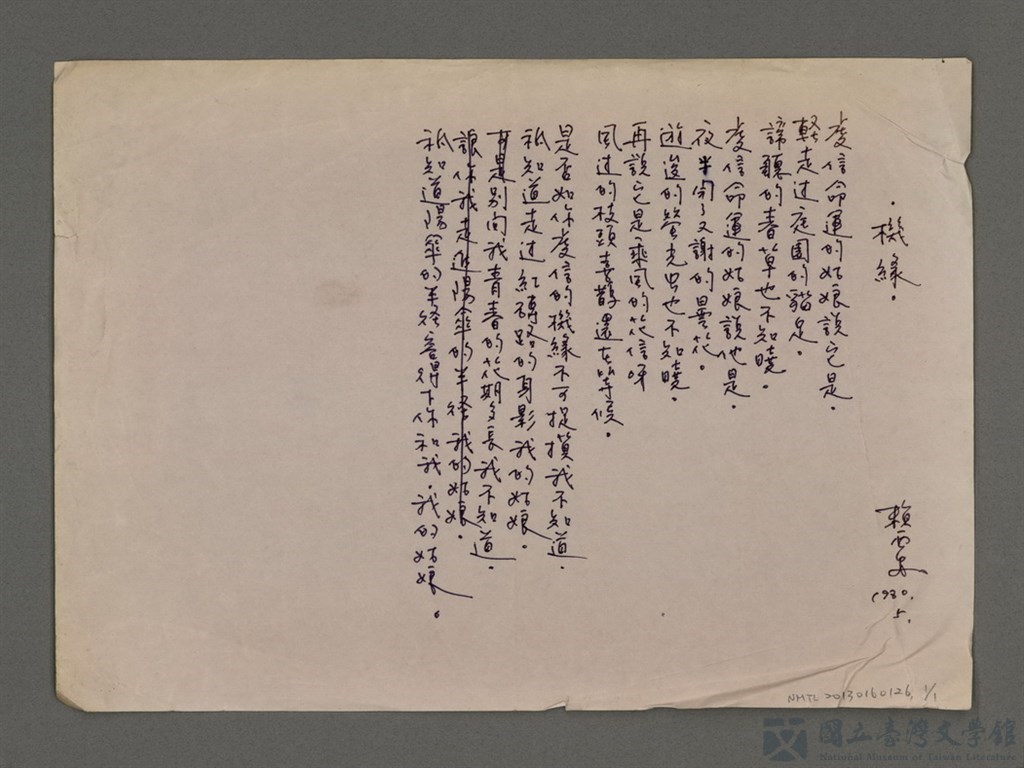 ·機緣·
賴西安
1980.5.
虔信命運的姑娘說它是·
輕走过庭園的貓足·
諦聽的春草也不知曉·
虔信命運的姑娘說他是·
夜半開了又謝的曇花·
遊逡的螢光虫也不知曉·
再說它是乘風的花信呀
風过的枝頭春鵲還在等候·
是否如你虔信的機緣不可捉摸我不知道·
祗知道走过紅磚路的身影我的姑娘·
於是別问我青春的花期多長我不知道·
說你我走進陽傘的半徑我的姑娘·
祗知道陽傘的半徑容得下你和我·我的姑娘。
NMTL 20130160126, 1/1
國立臺灣文學館
National Museum of Taiwan Literature